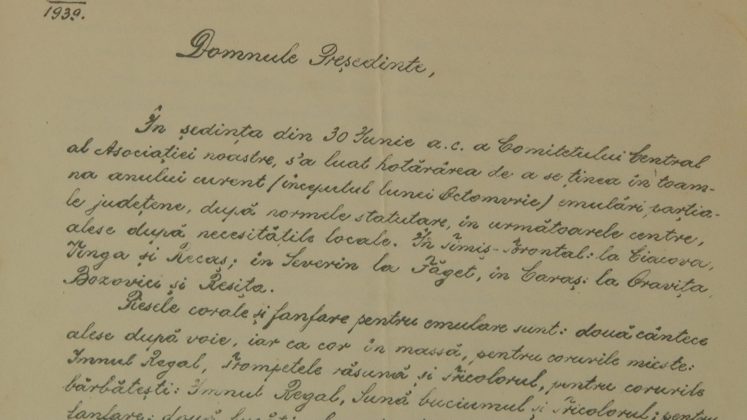 1939.
Domnule Președinte,
În ședința din 30 Iunie a.c. a Comitetului Central
al Asociației noastre, s'a luat hotărârea de a se ținea în toam-
na anului curent (începutul lunei Octomvrie) emulări parția-
le județene, după normele statutare, în următoarele centre,
alese după necesitățile locale. În Timiș-Torontal: la Ciacova,
Vinga și Recaș; în Severin la Făget, în Caraș: la Oravița
Bozovici și Reșița.
Piesele corale și fanfare pentru emulare sunt: două cântece
alese după voie, iar ca cor în massă, pentru corurile mixte:
Imnul Regal, Trompetele răsună și Tricolorul, pentru corurile
bărbătești: Imnul Regal, Sună buciumul și Tricolorul; pentru
fanfare: două